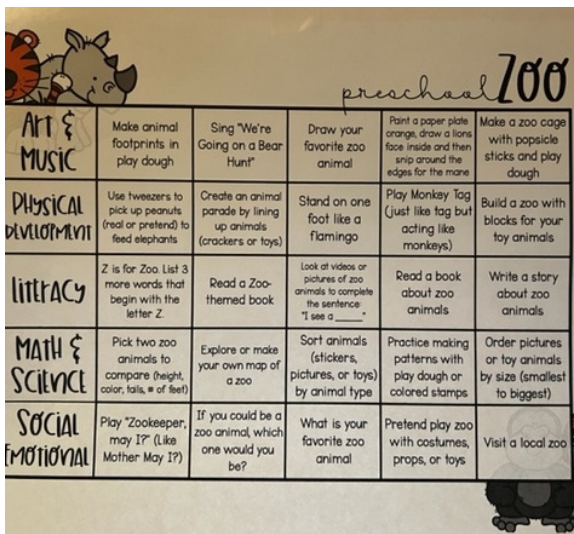 preschool ZOO
Art &
Music
Make animal
footprints in
play dough
Sing "We're
Going on a Bear
Hunt"
Draw your
favorite zoo
animal
Paint a paper plate
orange, draw a lions
face inside and then
snip around the
edges for the mane
Make a zoo cage
with popsicle
sticks and play
dough
Physical
Development
Use tweezers to
pick up peanuts
(real or pretend) to
feed elephants
Create an animal
parade by lining
up animals
(crackers or toys)
Stand on one
foot like a
flamingo
Play Monkey Tag
(just like tag but
acting like
monkeys)
Build a zoo with
blocks for your
toy animals
Literacy
Z is for Zoo. List 3
more words that
begin with the
letter Z.
Read a Zoo-
themed book
Look at videos or
pictures of zoo
animals to complete
the sentence:
"I see a _____"
Read a book
about zoo
animals
Write a story
about zoo
animals
Math &
Science
Pick two zoo
animals to
compare (height,
color, tails, # of feet)
Explore or make
your own map of
a zoo
Sort animals
(stickers,
pictures, or toys)
by animal type
Practice making
patterns with
play dough or
colored stamps
Order pictures
or toy animals
by size (smallest
to biggest)
Social
Emotional
Play "Zookeeper,
may I?" (Like
Mother May I?)
If you could be a
zoo animal, which
one would you
be?
What is your
favorite zoo
animal
Pretend play zoo
with costumes,
props, or toys
Visit a local zoo